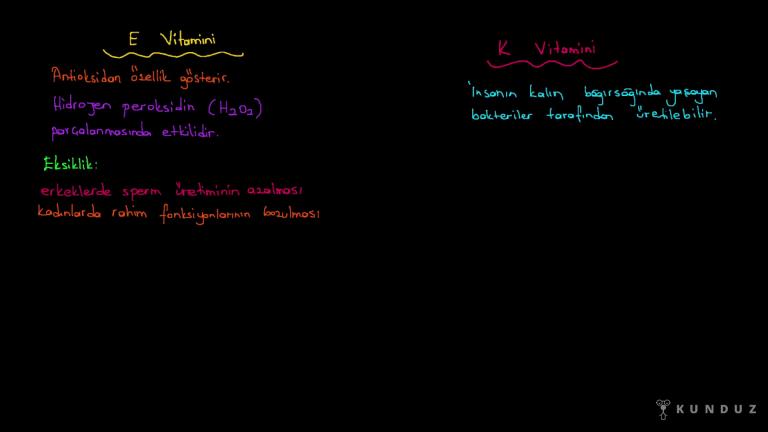 E Vitamini
Antioksidan özellik gösterir.
Hidrojen peroksidin (H₂O₂)
parçalanmasında etkilidir.
Eksiklik:
erkeklerde sperm üretiminin azalması
kadınlarda rahim fonksiyonlarının bozulması
K Vitamini
İnsanın kalın bağırsağında yaşayan
bakteriler tarafından üretilebilir.
KUNDUZ